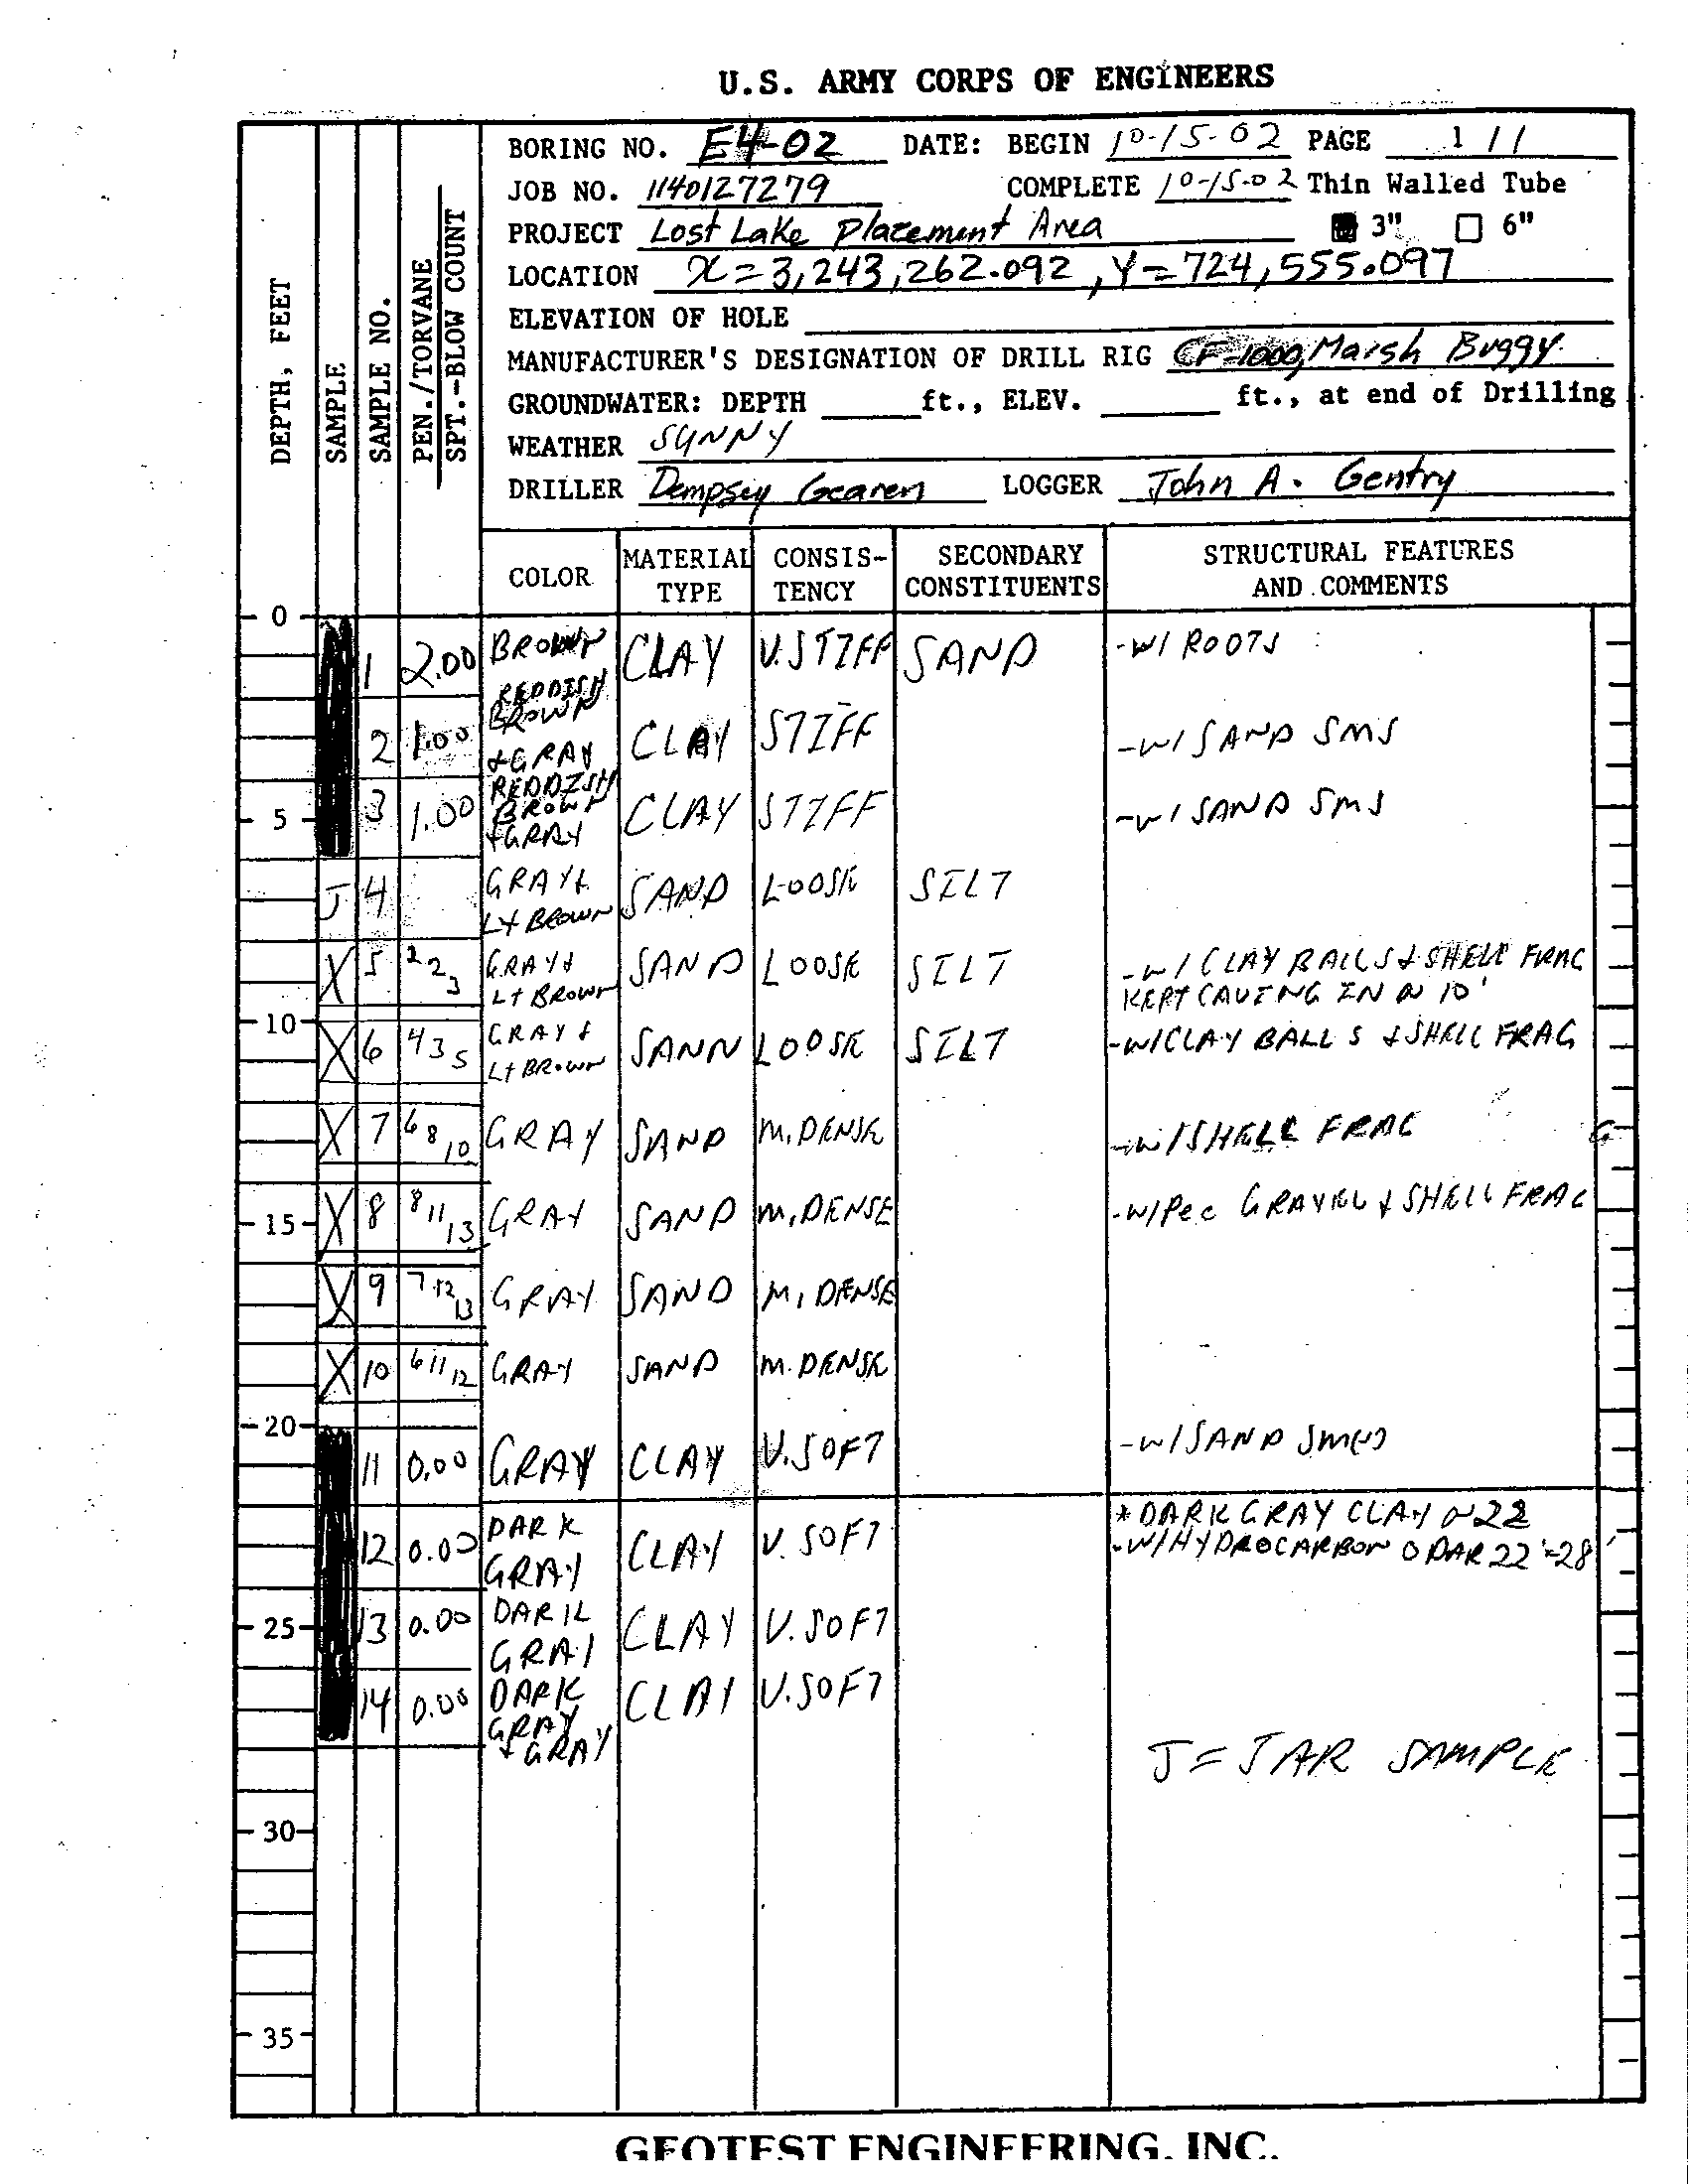 U.S. ARMY CORPS OF ENGINEERS
BORING NO. E4-02 DATE: BEGIN 10-15-02 PAGE 1 / 1
JOB NO. 1140127279 COMPLETE 10-15-02 Thin Walled Tube
PROJECT Lost Lake Placement Area 3" 6"
LOCATION X=3,243,262.092, Y=724,555.097
ELEVATION OF HOLE
MANUFACTURER'S DESIGNATION OF DRILL RIG CF-1000, Marsh Buggy
GROUNDWATER: DEPTH ft., ELEV. ft., at end of Drilling
WEATHER SUNNY
DRILLER Dempsey Gearen LOGGER John A. Gentry
DEPTH, FEET
SAMPLE
SAMPLE NO.
PEN./TORVANE
SPT.-BLOW COUNT
COLOR MATERIAL TYPE CONSIS-TENCY SECONDARY CONSTITUENTS STRUCTURAL FEATURES AND COMMENTS
0
1 2.00 BROWN CLAY V.STIFF SAND -W/ ROOTS
2 1.00 REDDISH BROWN &GRAY CLAY STIFF -W/ SAND SMS
5 3 1.00 REDDISH BROWN +GRAY CLAY STIFF -W/ SAND SMS
J 4 GRAY & Lt BROWN SAND LOOSE SILT
X 5 2 2 3 GRAY & Lt BROWN SAND LOOSE SILT -W/ CLAY BALLS & SHELL FRAG
KEPT CAVING IN @ 10'
10 X 6 4 3 5 GRAY & Lt BROWN SAND LOOSE SILT -W/CLAY BALLS & SHELL FRAG
X 7 6 8 10 GRAY SAND M. DENSE -W/SHELL FRAG
15 X 8 8 11 13 GRAY SAND M. DENSE -W/Pec GRAVEL & SHELL FRAG
X 9 7 12 13 GRAY SAND M. DENSE
X 10 6 11 12 GRAY SAND M. DENSE
20
11 0.00 GRAY CLAY V.SOFT -W/SAND SM(S)
12 0.00 DARK GRAY CLAY V. SOFT *DARK GRAY CLAY @ 22
-W/HYDROCARBON ODAR 22'-28'
25 13 0.00 DARK GRAY CLAY V. SOFT
14 0.00 DARK GRAY & GRAY CLAY V.SOFT
J = JAR SAMPLE
30
35
GEOTEST ENGINEERING, INC.